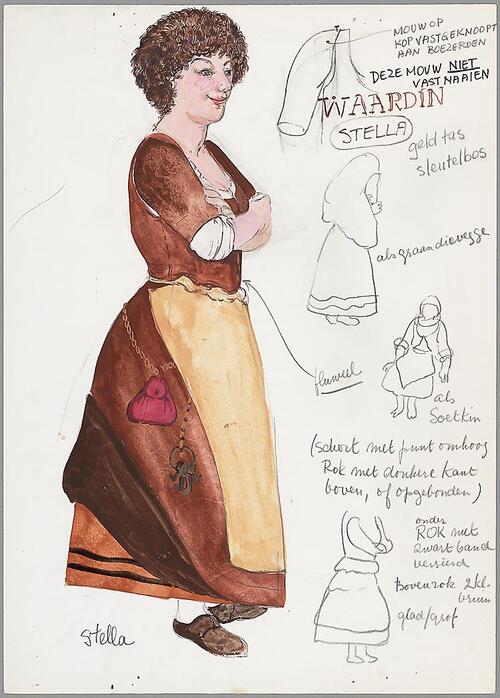 MOUW OP
KOP VASTGEKNOOPT
AAN BOEZERDEN
DEZE MOUW NIET
VASTNAAIEN
WAARDIN
STELLA
geld tas
sleutelbos
als graandievegge
fluweel
als
Soetkin
(schort met punt omhoog
Rok met donkere kant
boven, of opgebonden)
onder
ROK met
zwart band
versierd
bovenrok 2kl.
bruin
glad/grof
Stella